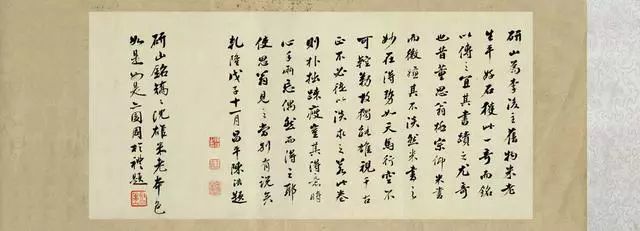 研山為李後主舊物米老
生平好石獲此一奇而銘
以傳之宜其書蹟之尤奇
也昔董思翁極宗仰米書
而微憾其不淡然米書之
妙在得勢如天馬行空不
可控勒故獨能雄視千古
正不必徒以淡求之若此卷
則朴拙疎瘦豈其得意時
心手兩忘偶然而得之耶
使思翁見之當別有說矣
乾隆戊子十一月昌平陳浩題
研山銘矯矯沈雄米老本色
如是如是周於禮題